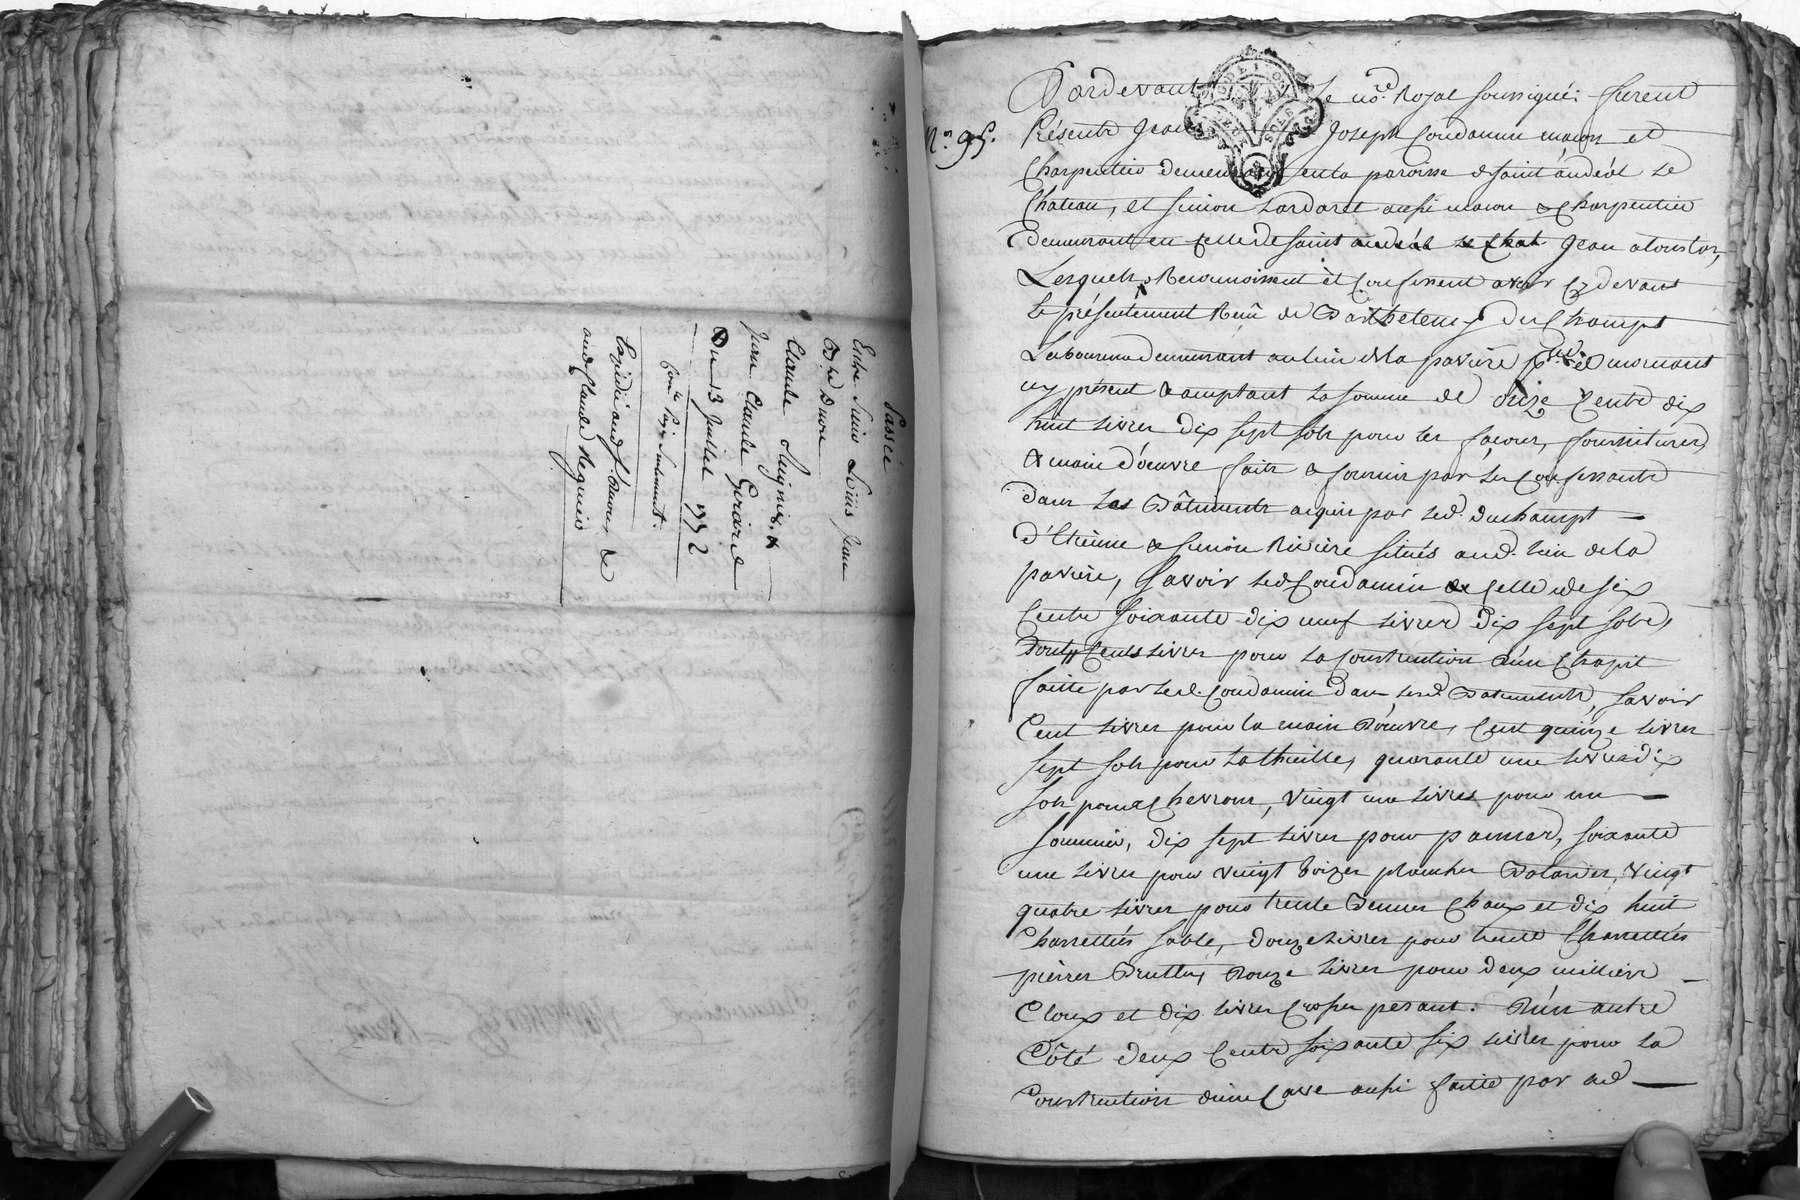 Passée
Entre Srs Louis Jean
Bte Duon
Claude Juignier &
Jean Claude Girard
Du 13 Juillet 1792
Con.le Pay. seulement.
Expédié aud. s. Duon, &
aud. Claude
N.° 95.
Pardevant Le no.re Royal soussigné: furent
Présents Jean Joseph Coudamin macon et
Charpentier demeurant en la paroisse de saint andéol le
Chateau, et simon Lardaret aussi macon & Charpentier
Demeurant en celle de saint Jean a toustas,
Lesquels Reconnoissent et Confessent avoir Cy devant
& présentement Reçu de Barthelemy Du Champt
Laboureur demeurant au lieu de la pavière p.sse de mornant
icy présent & acceptant La somme de onze Cents dix
huit Livres dix sept sols pour les façons, fournitures,
& main d'oeuvre faits & fournis par les Confessants
dans les Bâtiments acquis par led. duchampt
d'Etienne & simon Rivière situés aud. lieu de la
pavière, Savoir led. Coudamin Celle de six
Cents soixante dix neuf Livres dix sept sols,
Dont Cents Livres pour la Construction d'un Chapit
faitte par led. Coudamin dans lesd. Batiments, savoir
Cent Livres pour la main d'oeuvre, Cent quinze Livres
sept sols pour la thuille, quarante une Livres dix
sols pour chevrons, vingt une Livres pour un
sommier, dix sept Livres pour pannes, soixante
une Livres pour vingt toizes plancher vingt
quatre Livres pour trente Bennes Chaux et dix huit
Charretées sable, douze Livres pour trente Charretées
pierres Bruttes, douze Livres pour deux milliers
Cloux et dix Livres Crosses pesant: D'un autre
Côté deux Cents soixante six Livres pour la
Construction d'une Cave aussi faitte par led.